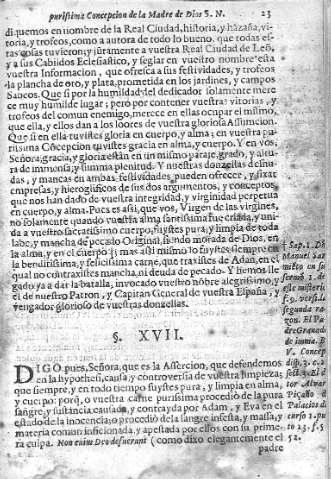 purissima Concepcion de la Madre de Dios S. N. 23
diquemos en nombre de la Real Ciudad, historia, y hazaña, vitoria,
y trofeos, como a autora de todo lo bueno, que todas estas
cosas tuvieron; y juntamente a vuestra Real Ciudad de Leõ,
y a sus Cabildos Eclesiastico, y seglar en vuestro nombre esta
vuestra Informacion, que ofresca a sus festividades, y trofeos
la plancha de oro, y plata, prometida en los jardines, y campos
Saucos. Que si por la humildad del dedicador solamente merece
muy humilde lugar; pero por contener vuestras vitorias, y
trofeos del comun enemigo, merece en ellas ocupar el mismo,
que ella, y ellos dan a los loores de vuestra gloriosa Assumcion.
Que si en ella tuvistes gloria en cuerpo, y alma; en vuestra purissima
Cõcepcion tuvistes gracia en alma, y cuerpo. Y en vos,
Señora, gracia, y gloria están en un mismo parage, grado, y altura
de inmensa, y summa plenitud. Y nuestras donzellas desnudas,
y mancas en ambas festividades pueden ofrecer, y fixar
empresas, y hieroglificos de sus dos argumentos, y conceptos,
que nos han dado de vuestra integridad, y virginidad perpetua
en cuerpo, y alma. Pues es assi, que vos, Virgen de las virgines,
no solamente quando vuestra alma santissima fue criada, y unida
a vuestro sacratissimo cuerpo, fuystes pura, y limpia de toda
labe, y mancha de pecado Original, siendo morada de Dios, en
la alma, y en el cuerpo; † mas assi mismo lo fuystes siempre en
la bendítissima, y felicissima carne, que traxistes de Adan, en el
qual no contraxistes mancha, ni deuda de pecado. Y hemos llegado
ya a dar la batalla, invocado vuestro nõbre alegrissimo, y
el de nuestro Patron, y Capitan General de vuestra España, y
vengador glorioso de vuestras donzellas.
§. XVII.
DIGO pues, Señora, que es la Assercion, que defendemos
en la hypothesi, causa, y controversia de vuestra limpieza;
que siempre, y en todo tiempo fuystes pura, y limpia en alma,
y cuerpo: porq̃, o vuestra carne purissima procedió de la pura
sangre, y sustancia, causada, y contrayda por Adam, y Eva en el
estado de la inocencia; o procedió de la sangre infesta, y massa,
materia comun inficionada, y apestada por ellos con su primera
culpa. Non enim Deo defuerant (como dixo elegantemente el
padre
† Sup. 1.
Manuel
en su
este misterio
segunda razon.
El Padre
Granado
de inmu.
V. Concep
disp. 3. c. 2
sect. 3. El dotor
Alvar
Piçaño
Palacios
curso 2.
to 23. f. 5
52.